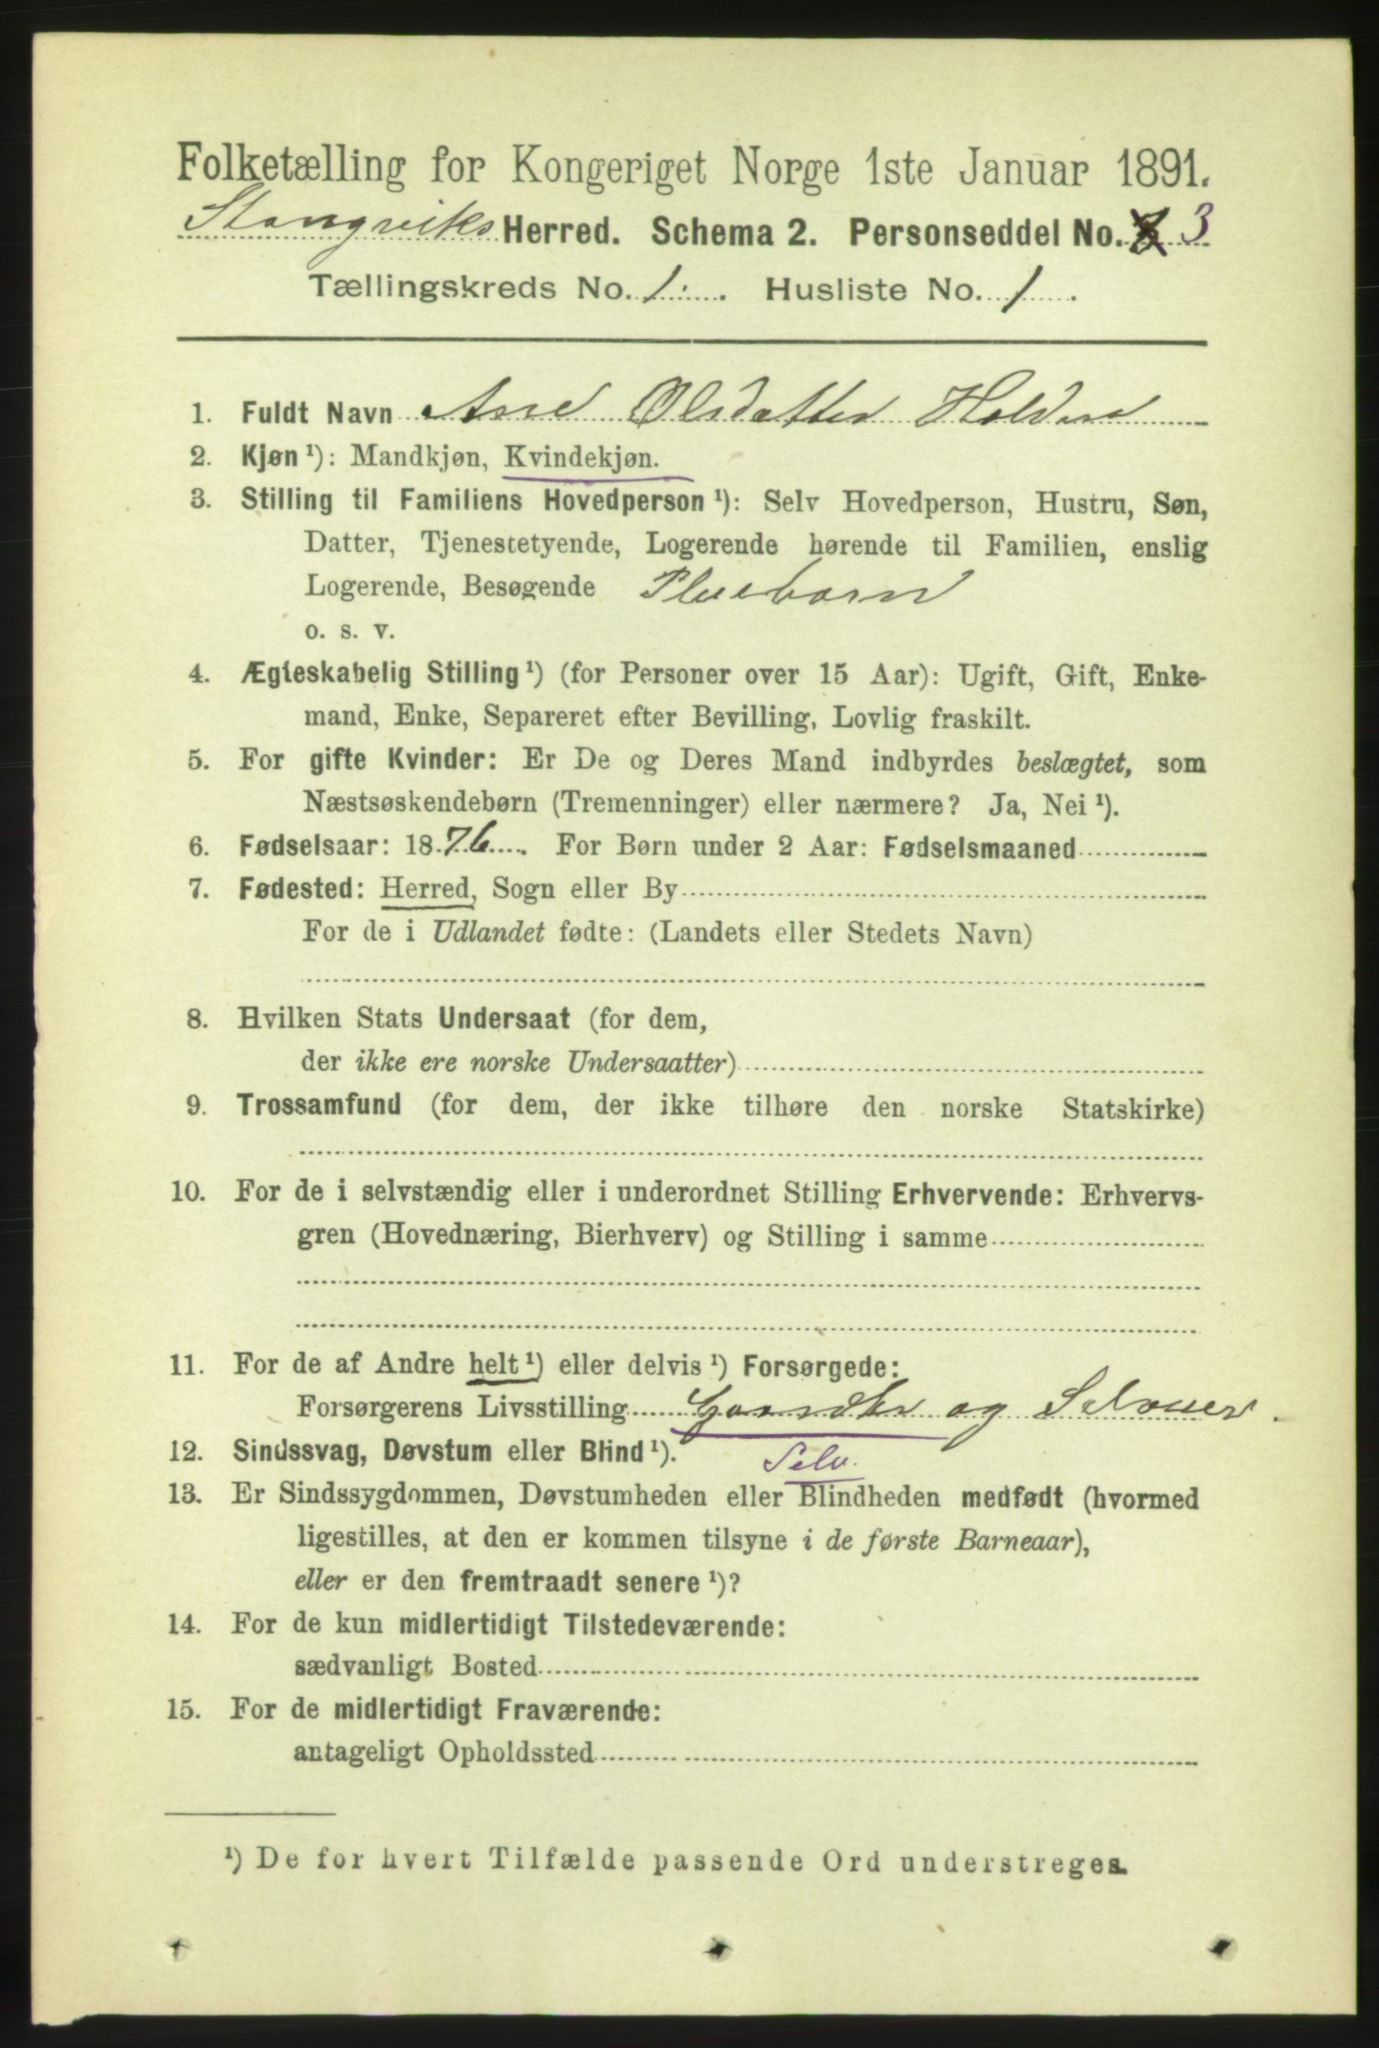 Folketælling for Kongeriget Norge 1ste Januar 1891.
Stangviks Herred. Schema 2. Personseddel No. 3
Tællingskreds No. 1. Husliste No. 1.
1. Fuldt Navn Ane Olsdatter
2. Kjøn ¹): Mandkjøn, Kvindekjøn.
3. Stilling til Familiens Hovedperson ¹): Selv Hovedperson, Hustru, Søn,
Datter, Tjenestetyende, Logerende hørende til Familien, enslig
Logerende, Besøgende Pleiebarn
o. s. v.
4. Ægteskabelig Stilling ¹) (for Personer over 15 Aar): Ugift, Gift, Enke-
mand, Enke, Separeret efter Bevilling, Lovlig fraskilt.
5. For gifte Kvinder: Er De og Deres Mand indbyrdes beslægtet, som
Næstsøskendebørn (Tremenninger) eller nærmere? Ja, Nei ¹).
6. Fødselsaar: 1876. For Børn under 2 Aar: Fødselsmaaned
7. Fødested: Herred, Sogn eller By
For de i Udlandet fødte: (Landets eller Stedets Navn)
8. Hvilken Stats Undersaat (for dem,
der ikke ere norske Undersaatter)
9. Trossamfund (for dem, der ikke tilhøre den norske Statskirke)
10. For de i selvstændig eller i underordnet Stilling Erhvervende: Erhvervs-
gren (Hovednæring, Bierhverv) og Stilling i samme
11. For de af Andre helt ¹) eller delvis ¹) Forsørgede:
Forsørgerens Livsstilling Gaardbr og Selveier.
12. Sindssvag, Døvstum eller Blind ¹). Selv.
13. Er Sindssygdommen, Døvstumheden eller Blindheden medfødt (hvormed
ligestilles, at den er kommen tilsyne i de første Barneaar),
eller er den fremtraadt senere ¹)?
14. For de kun midlertidigt Tilstedeværende:
sædvanligt Bosted
15. For de midlertidigt Fraværende:
antageligt Opholdssted
¹) De for hvert Tilfælde passende Ord understreges.